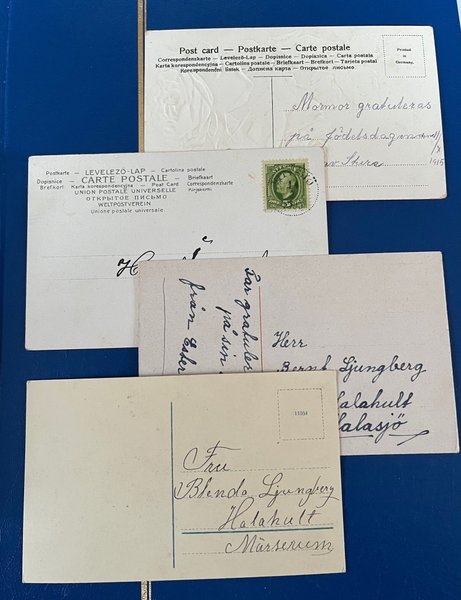 Post card — Postkarte — Carte postale
Correspondenskarte — Levelező-Lap — Dopisnice — Dopisnica — Carta postala
Karta korrespondencyjna — Cartolina postale — Briefkaart — Brefkort — Tarjeta postal
Korespondenční lístek — Дописна карта — Открытое письмо
Printed
in
Germany.
Mormor gratuleras
på födelsdagen
1915
Postkarte - LEVELEZŐ-LAP - Cartolina postale
Dopisnice - CARTE POSTALE - Briefkaart
Brefkort - Karta korespondencyjna - Post Card - Correspondenzkarte
UNION POSTALE UNIVERSELLE
ОТКРЫТОЕ ПИСЬМО
WELTPOSTVEREIN
Unione postale universale
5
Far gratuler
på sin
från Ester
Herr
Bernt Ljungberg
Halahult
11054
Fru
Blenda Ljungberg
Halahult
Märserum